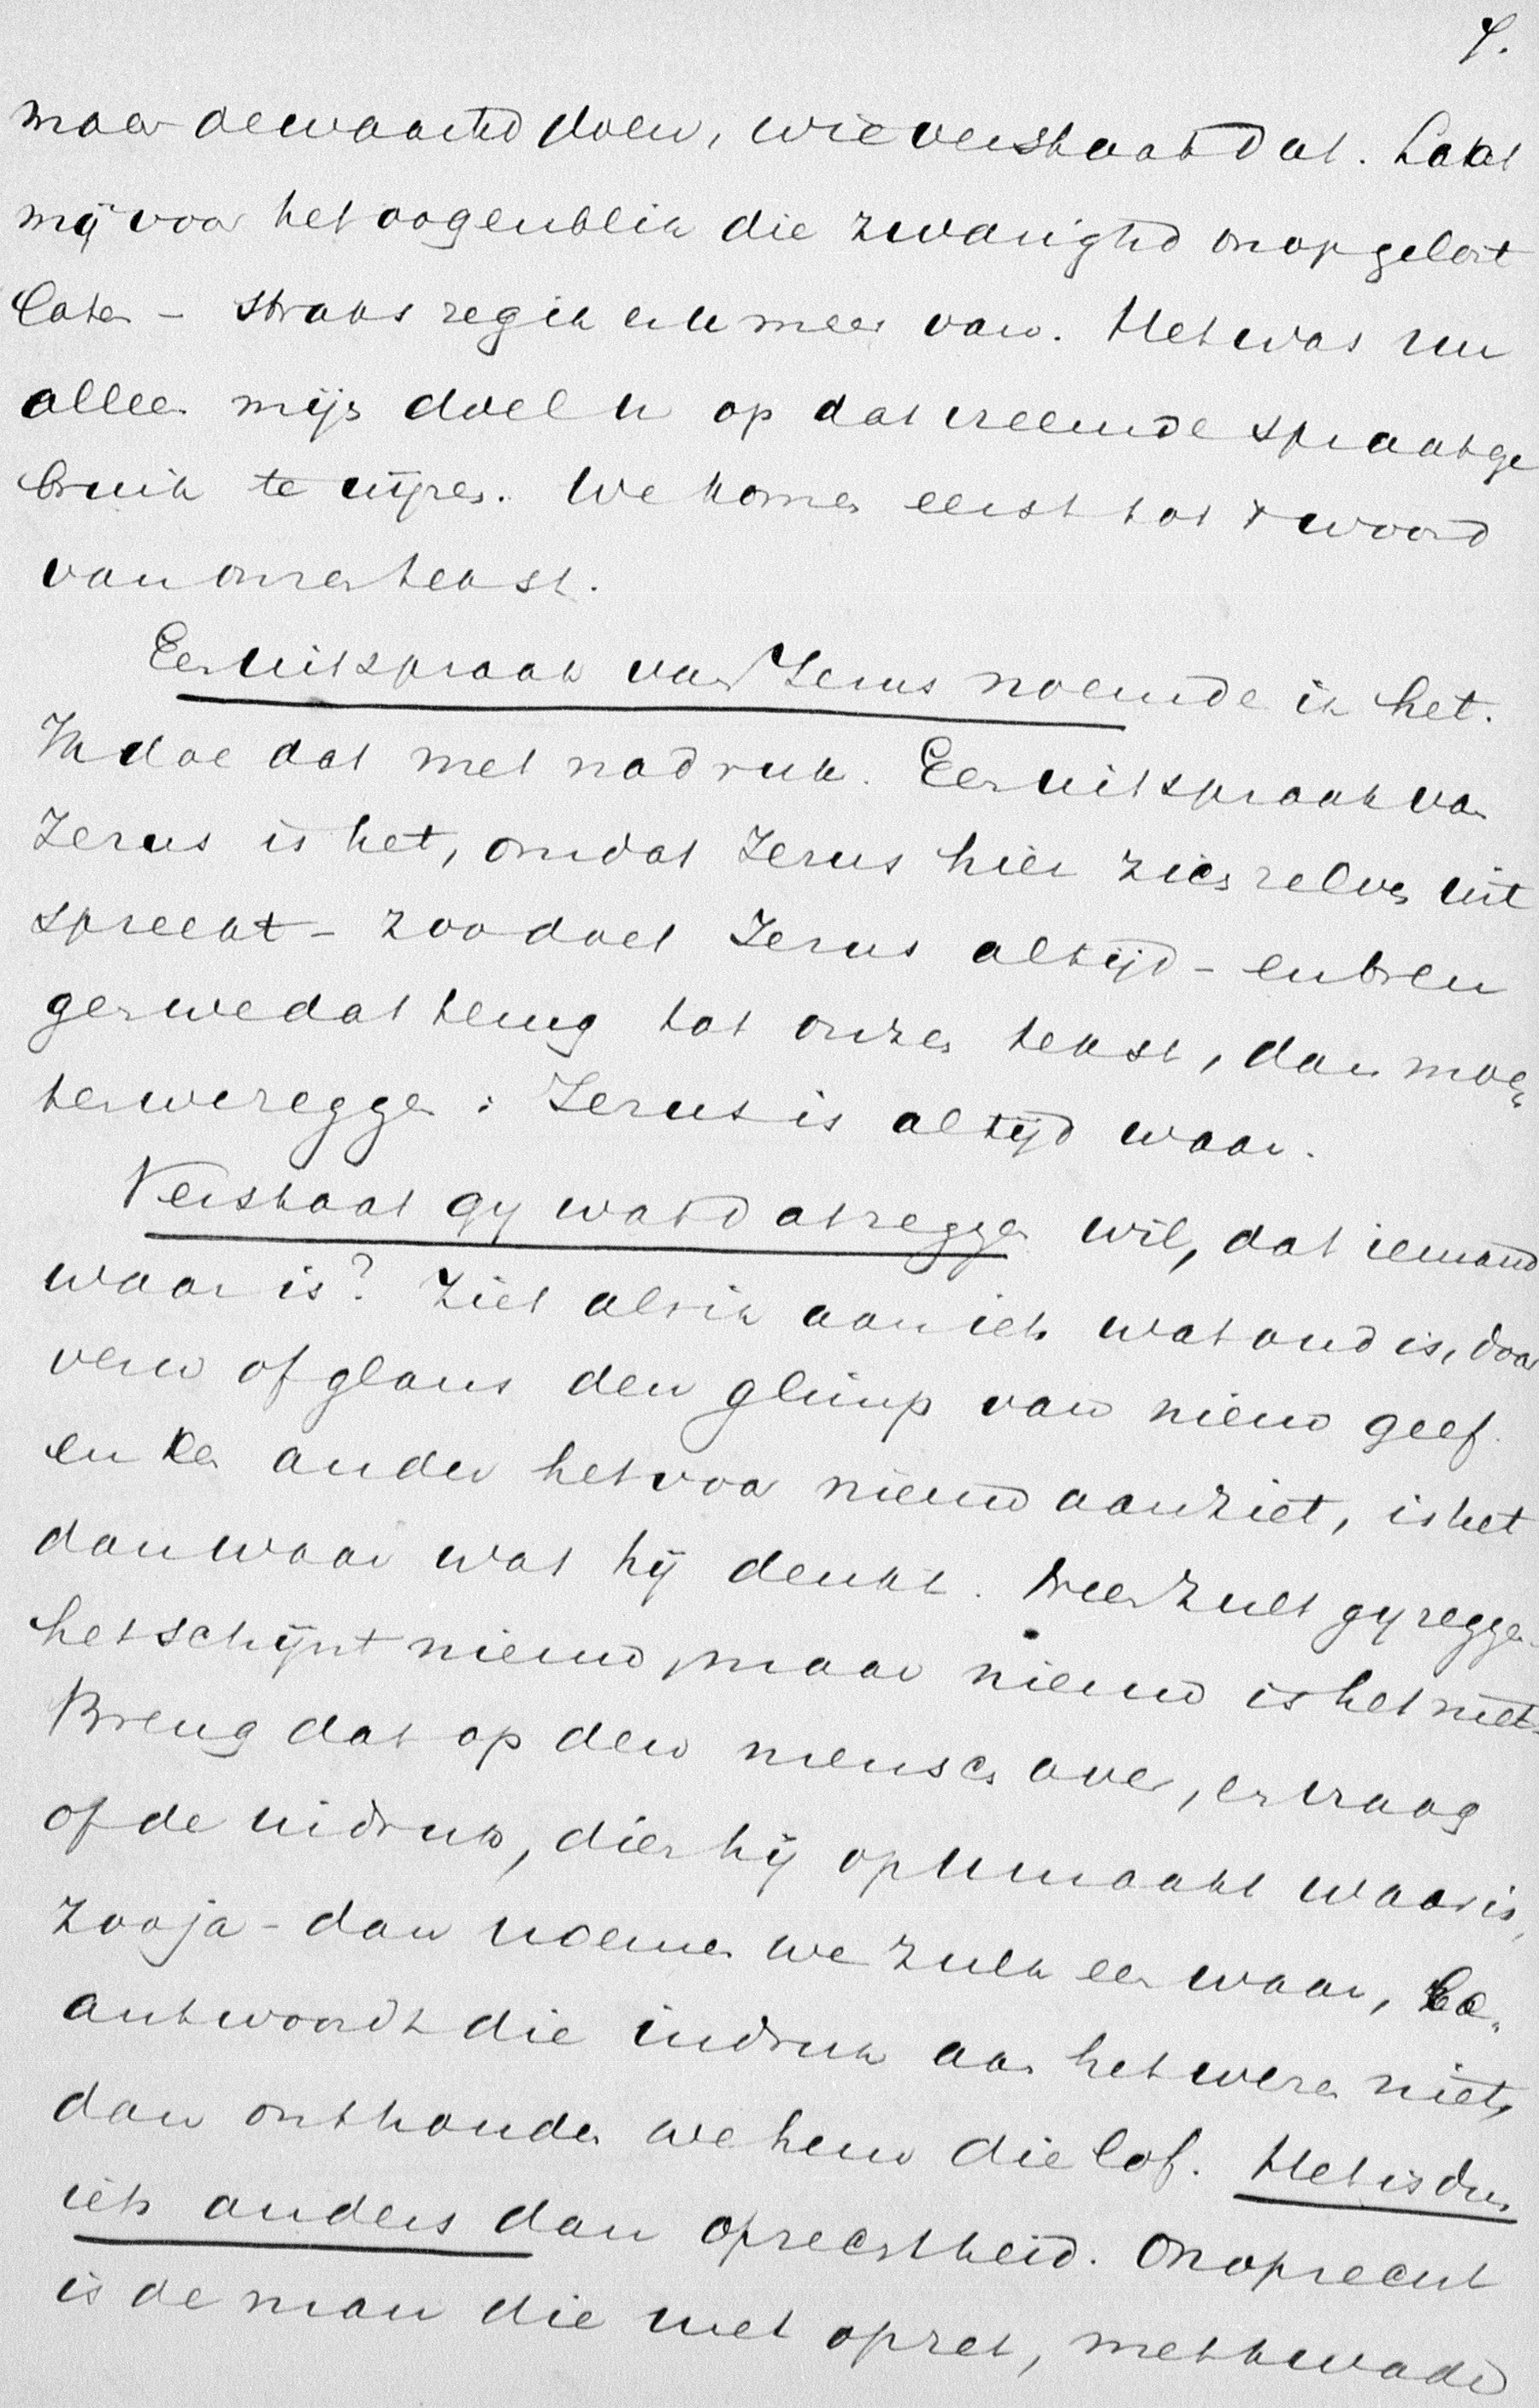 4.
maar de waarhd doen, wie verstaat dat. Laat
mij voor het oogenblik die zwarighd onopgelost
laten – straks zeg ik er u meer van. Het was nu
alleen mijn doel u op dat vreemde spraakge
bruik te wijzen. We komen eerst tot 't woord
van onzen tekst.
Een uitspraak van Jezus noemde ik het.
Ik doe dat met nadruk. Een uitspraak van
Jezus is het, omdat Jezus hier zich zelven uit
spreekt – zoo doet Jezus altijd – en bren
gen we dat terug tot onzen tekst, dan moe„
ten we zeggen: Jezus is altijd waar.
Verstaat gy wat dat zeggen wil, dat iemand
waar is? Ziet als ik aan iets wat oud is, door
verw of glans den glimp van nieuw geef
en een ander het voor nieuw aanziet, is het
dan waar wat hij denkt. Neen zult gy zeggen
het schijnt nieuw, maar nieuw is het niet.
Breng dat op den mensch over, en vraag
of de indruk, dien hij op u maakt waar is,
zoo ja – dan noemen we zulk een waar, be„
antwoordt die indruk aan het wezen niet,
dan onthouden we hem die lof. Het is dus
iets anders dan oprechtheid. Onoprecht
is de man die met opzet, met kwade